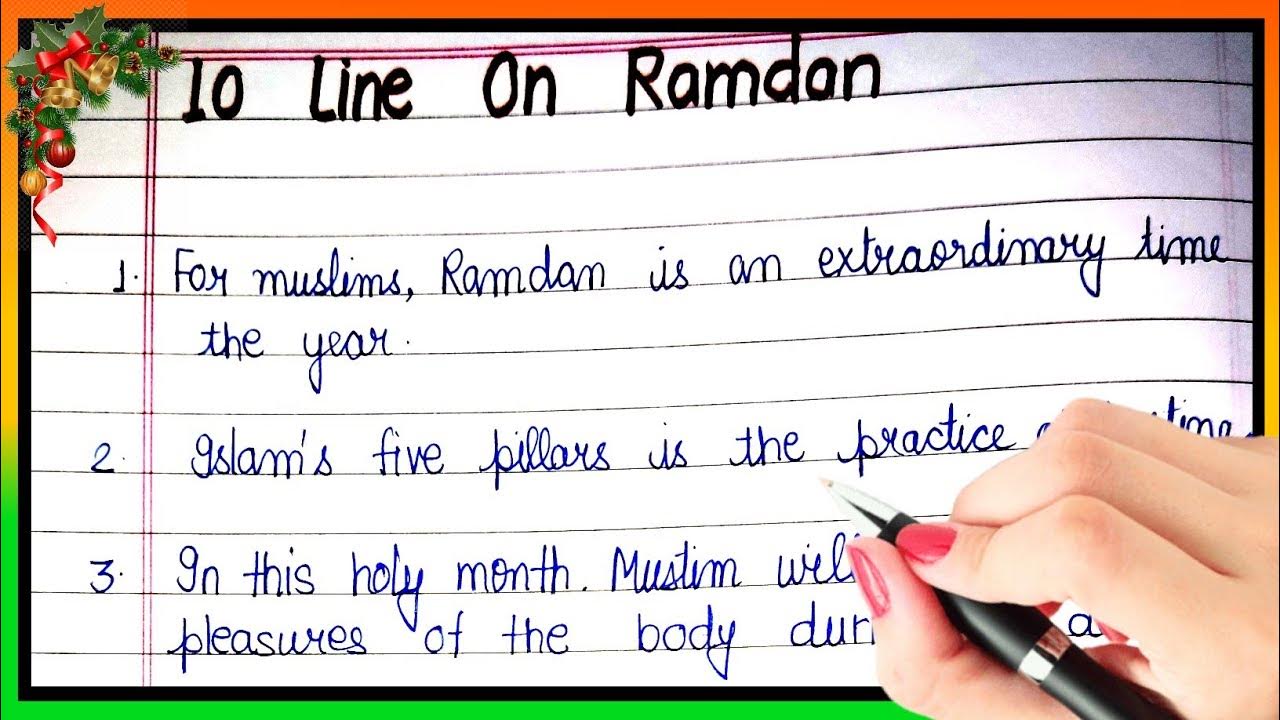 10 Line On Ramdan
1. For muslims, Ramdan is an extraordinary time
the year.
2. Islam's five pillars is the practice
3. In this holy month. Mustim
pleasures of the body